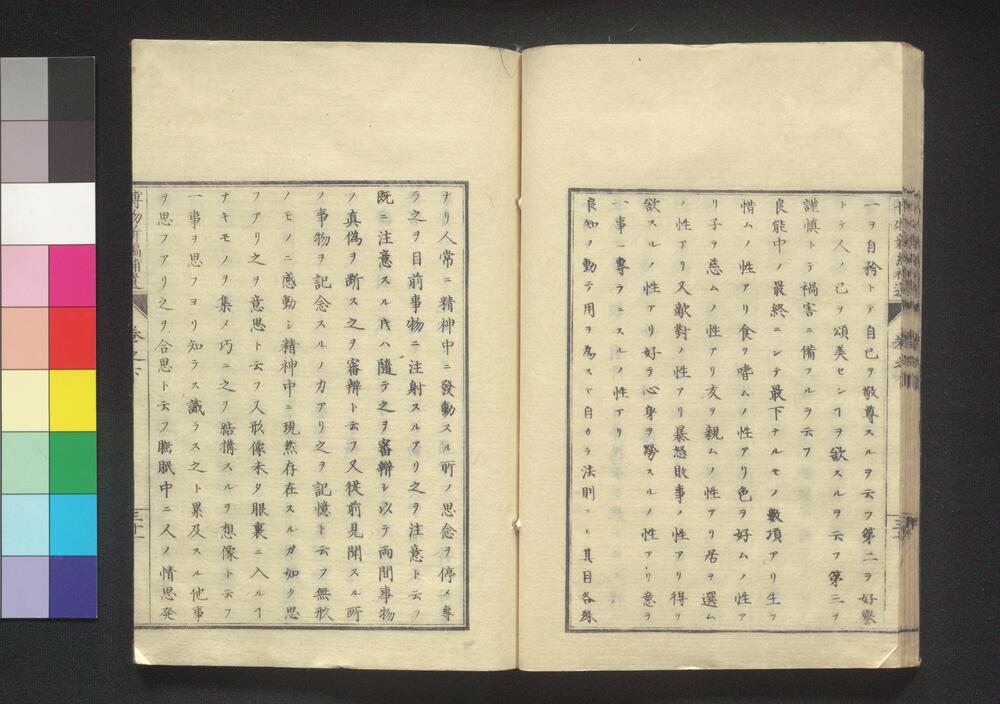 一ヲ自矜トテ自己ヲ敬尊スルヲ云フ第二ヲ好譽
トテ人ノ己ヲ頌美センヿヲ欲スルヲ云フ第三ヲ
謹慎トテ禍害ニ備フルヲ云フ
良能中ノ最終ニシテ最下ナルモノ數項アリ生ヲ
惜ムノ性アリ食ヲ嗜ムノ性アリ色ヲ好ムノ性ア
リ子ヲ慈ムノ性アリ友ヲ親ムノ性アリ居ヲ選ム
ノ性アリ又敵對ノ性アリ暴怒敗事ノ性アリ得ヲ
欲スルノ性アリ好テ心身ヲ勞スルノ性アリ意ヲ
一事ニ專ラニスルノ性アリ
良知ノ動テ用ヲ為スヤ自カラ法則アリ其目各殊
ナリ人常ニ精神中ニ發動スル所ノ思念ヲ停メ專
ラ之ヲ目前事物ニ注射スルアリ之ヲ注意ト云フ
既ニ注意スル片ハ隨テ之ヲ審辨シ以テ両間事物
ノ真偽ヲ断ス之ヲ審辨ト云フ又從前見聞スル所
ノ事物ヲ記念スルノ力アリ之ヲ記憶ト云フ無形
ノモノニ感動シ精神中ニ現然存在スルガ如ク思
フアリ之ヲ意思ト云フ又形像未タ眼裏ニ入ルヿ
ナキモノヲ集メ巧ニ之ヲ結搆スルヲ想像ト云フ
一事ヲ思フヨリ知ラス識ラス之ト累及スル他事
ヲ思フアリ之ヲ合思ト云フ睡眠中ニ人ノ情思発
博物新編補遺 卷之下 三十一